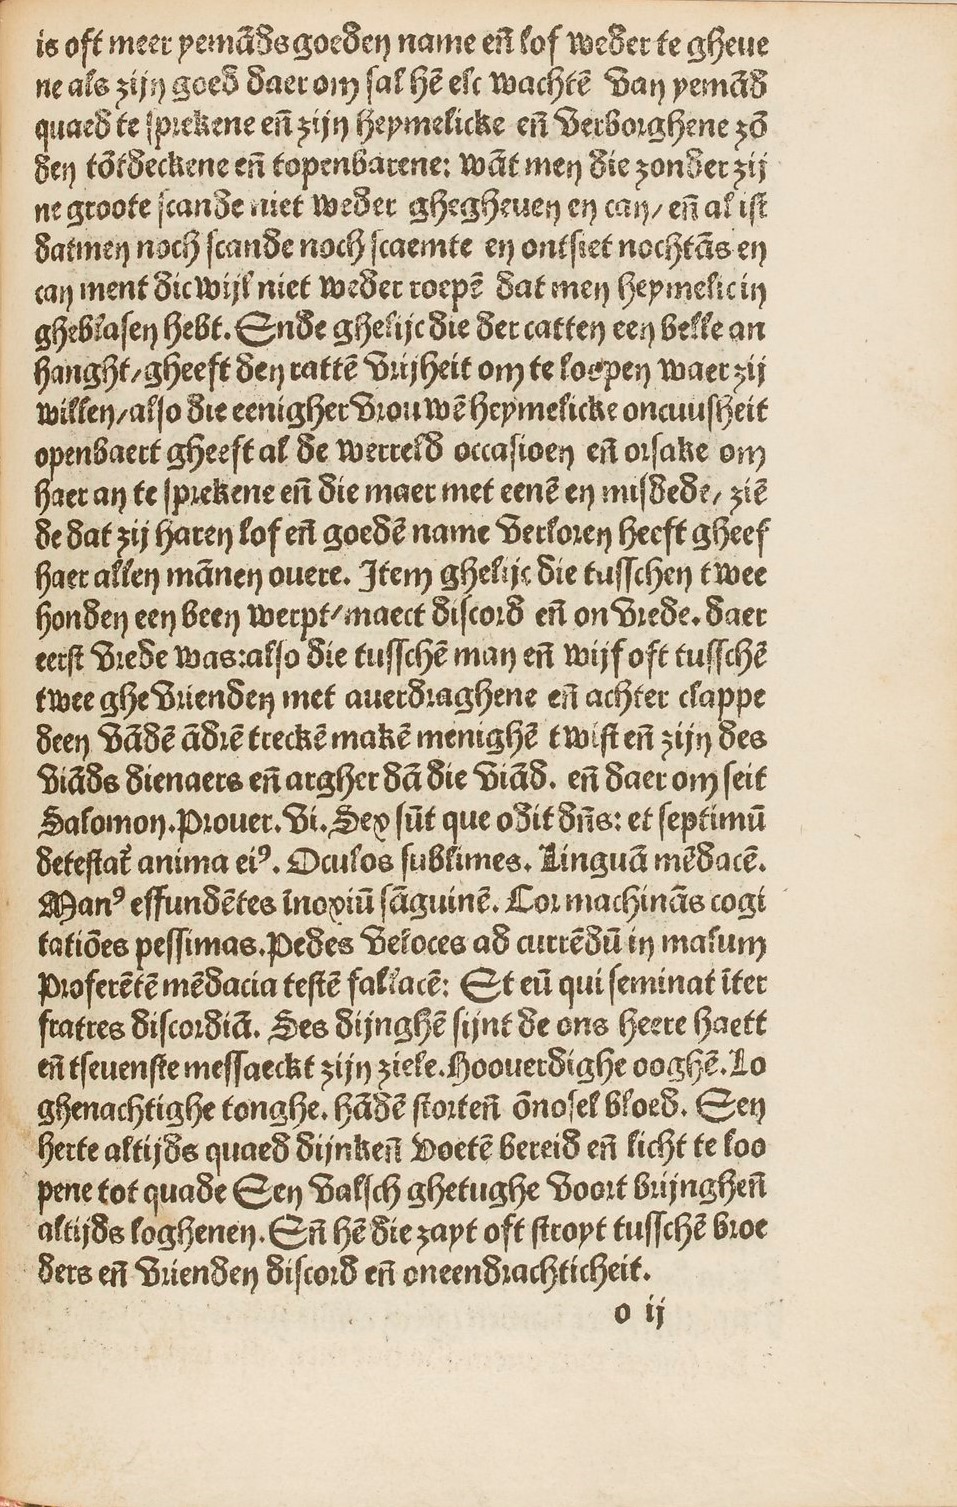 is oft meer yemāds goeden name eñ lof weder te gheue
ne als zijn goed daer om sal hē elc wachtē van yemād
quaed te sprekene eñ zijn heymelicke eñ verborghene zō
den tōtdeckene eñ topenbarene: wāt men die zonder zij
ne groote scande niet weder ghegheuen en can/ eñ al ist
datmen noch scande noch scaemte en ontsiet nochtās en
can ment dicwijl niet weder roepē dat men heymelic in
gheblasen hebt. Ende ghelijc die der catten een belle an
hanght/gheeft den rattē vrijheit om te loopen waer zij
willen/also die eenigher vrouwē heymelicke oncuusheit
openbaert gheeft al de werreld occasioen eñ orsake om
haer an te sprekene eñ die maer met eenē en misdede/ ziē
de dat zij haren lof eñ goedē name verloren heeft gheef
haer allen mānen ouere. Item ghelijc die tusschen twee
honden een been werpt/maect discord eñ onvrede. daer
eerst vrede was:also die tusschē man eñ wijf oft tusschē
twee ghevrienden met auerdraghene eñ achter clappe
deen vādē ādrē treckē makē menighē twist eñ zijn des
viāds dienaers eñ argher dā die viād. eñ daer om seit
Salomon.Prouer.vi. Sex sūt que odit dñs: et septimū
detestat̄ anima eiꝰ. Oculos sublimes. Linguā mēdacē.
Manꝰ effundētes īnoxiū sāguinē. Cor machinās cogi
tatiōes pessimas.Pedes veloces ad currēdū in malum
Proferētē mēdacia testē fallacē: Et eū qui seminat īter
fratres discordiā. Ses dijnghē sijnt de ons heere haett
eñ tseuenste messaeckt zijn ziele.Hoouerdighe ooghē.Lo
ghenachtighe tonghe. hādē storteñ ōnosel bloed. Een
herte altijds quaed dijnkeñ voetē bereid eñ licht te loo
pene tot quade Een valsch ghetughe voort brijngheñ
altijds loghenen.Eñ hē die zayt oft stroyt tusschē broe
ders eñ vrienden discord eñ oneendrachticheit.
o ij